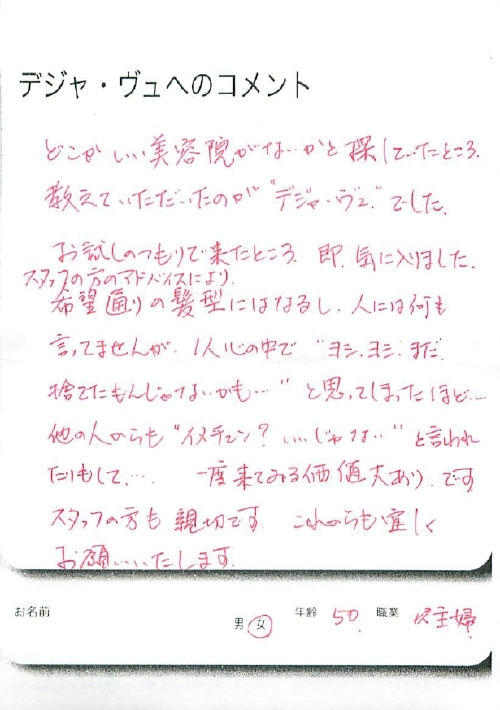 デジャ・ヴュへのコメント
どこかいい美容院がないかと探していたところ、
教えていただいたのが"デジャ・ヴュ"でした。
お試しのつもりで来たところ、即、気に入りました。
スタッフの方のアドバイスにより、
希望通りの髪型にはなるし、人には何も
言ってませんが、1人心の中で "ヨシ、ヨシ、まだ
捨てたもんじゃないかも…" と思ってしまったほど…
他の人からも "イメチェン? いいじゃない" と言われ
たりもして、… 一度来てみる価値大あり、です
スタッフの方も親切です。これからも宜しく
お願いいたします。
お名前 男 女 年齢 50 職業 主婦